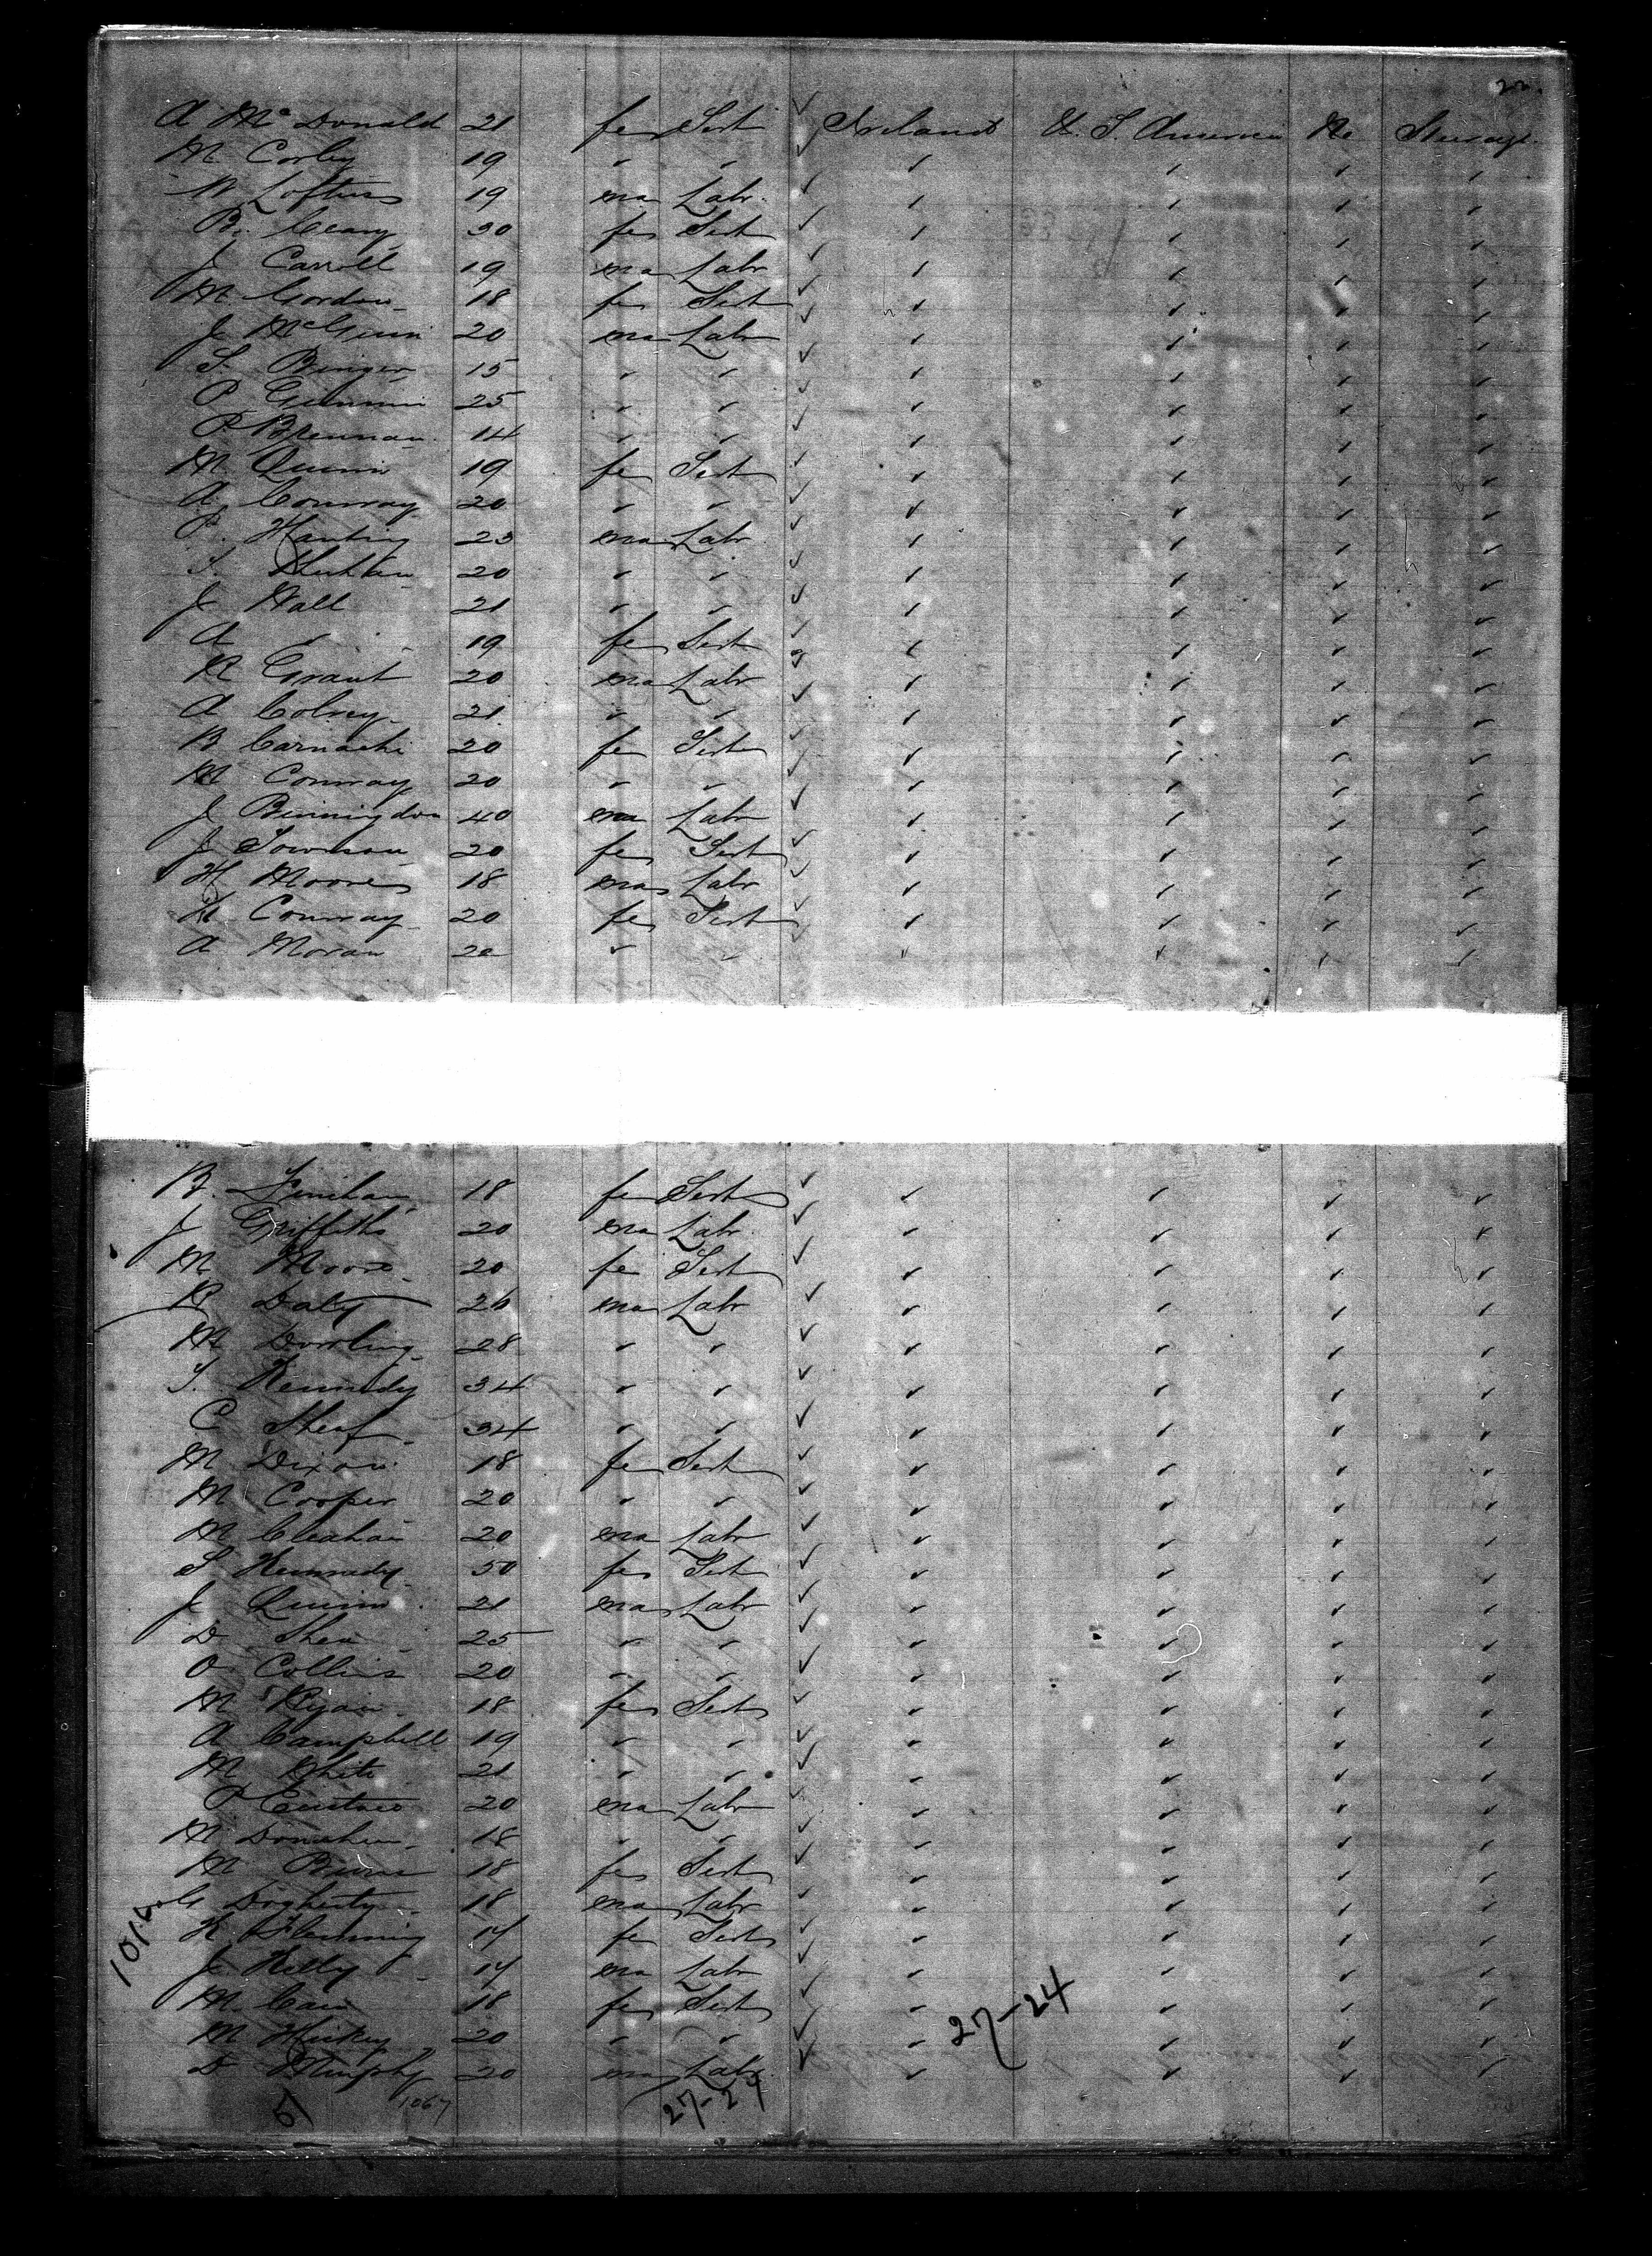 22.
A McDonald 21 fe Sert ✓ Ireland U. S. America No Steerage
M Corley 19 " " ✓ " " " "
W Loftus 19 ma Labr ✓ " " " "
B. Cleary 30 fe Sert ✓ " " " "
J Carroll 19 ma Labr ✓ " " " "
M Gordon 18 fe Sert ✓ " " " "
J McGinn 20 ma Labr ✓ " " " "
S. 15 " " ✓ " " " "
P 25 " " ✓ " " " "
P Brennan 14 " " ✓ " " " "
M Quinn 19 fe Sert ✓ " " " "
A Conway 20 " " ✓ " " " "
P. 23 ma Labr ✓ " " " "
20 " " ✓ " " " "
J Wall 21 " " ✓ " " " "
A " 19 fe Sert ✓ " " " "
R Grant 20 ma Labr ✓ " " " "
A 21 " " ✓ " " " "
B 20 fe Sert ✓ " " " "
M Conway 20 " " ✓ " " " "
J Binningdon 40 ma Labr ✓ " " " "
J 20 fe Sert ✓ " " " "
H Moore 18 ma Labr ✓ " " " "
K Conway 20 fe Sert ✓ " " " "
A Moran 20 " " ✓ " " " "
B. 18 fe Sert ✓ " " " "
J Griffiths 20 ma Labr ✓ " " " "
M Moore 20 fe Sert ✓ " " " "
Daly 26 ma Labr ✓ " " " "
M Dowling 28 " " ✓ " " " "
T. Kennedy 34 " " ✓ " " " "
C Sheaf 34 " " ✓ " " " "
M Dixon 18 fe Sert ✓ " " " "
M Cooper 20 " " ✓ " " " "
M 20 ma Labr ✓ " " " "
S Kennedy 50 fe Sert ✓ " " " "
J Quinn 21 ma Labr ✓ " " " "
D Shea 25 " " ✓ " " " "
O Collins 20 " " ✓ " " " "
M Ryan 18 fe Sert ✓ " " " "
A Campbell 19 " " ✓ " " " "
M White 21 " " ✓ " " " "
P Eustace 20 ma Labr ✓ " " " "
M Donohue 18 " " ✓ " " " "
M 18 fe Sert ✓ " " " "
G Dogherty 18 ma Labr ✓ " " " "
K Flemming 17 fe Sert ✓ " " " "
J Kelly 17 ma Labr ✓ " " " "
M. Cain 18 fe Sert ✓ " " " "
M Hickey 20 " " ✓ " " " "
D Murphy 20 ma Labr ✓ " " " "
27-24
51 1067 27-24